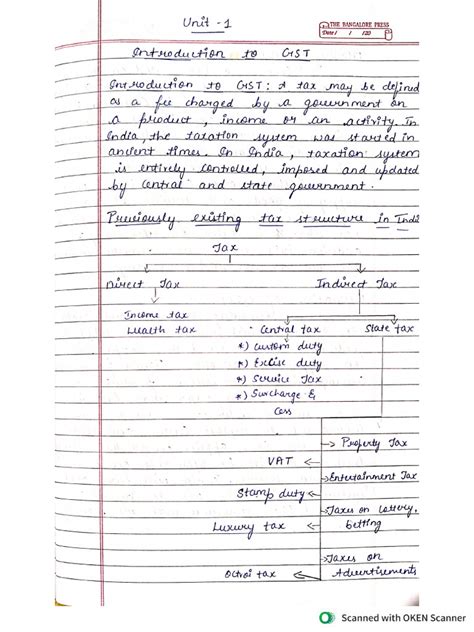 Unit - 1
THE BANGALORE PRESS
Date: / /20
Introduction to GST
Introduction to GST: A tax may be defined
as a fee charged by a government on
a product, income or an activity. In
India, the taxation system was started in
ancient times. In India, taxation system
is entirely controlled, imposed and updated
by central and state government.
Previously existing tax structure in Indi
Tax
Direct Tax Indirect Tax
Income tax
Wealth tax Central tax State tax
*) Custom duty
*) Excise duty
*) Service Tax
*) Surcharge &
Cess
Property Tax
VAT
Entertainment Tax
Stamp duty
Taxes on Lottery,
betting
Luxury tax
Taxes on
Advertisements
Octroi tax
Scanned with OKEN Scanner